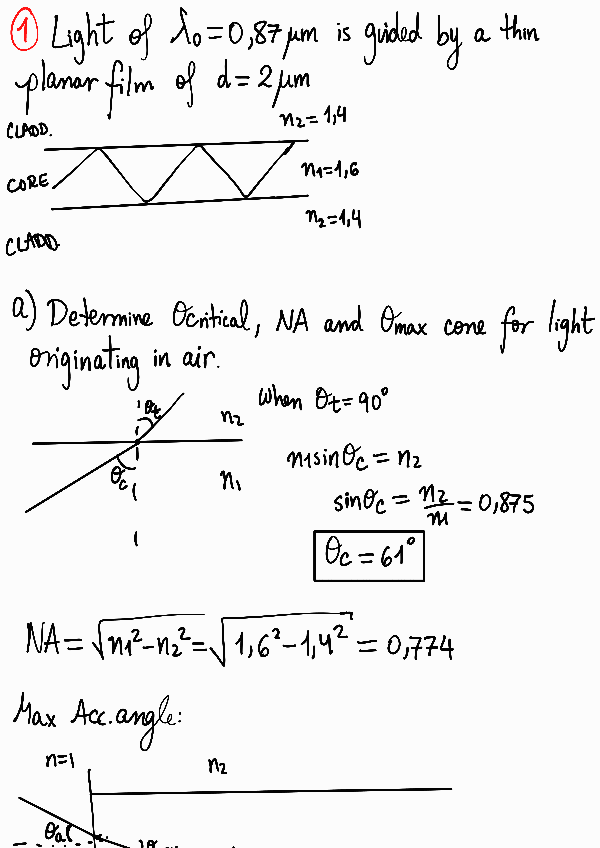 1 Light of λ₀=0,87 μm is guided by a thin
planar film of d=2μm
CLADD.
n₂=1,4
CORE
n₁=1,6
n₂=1,4
CLADD
a) Determine θcritical, NA and θmax cone for light
originating in air.
When θt=90°
θt
n₂
n₁sinθc = n₂
θc
n₁
sinθc = n₂/n₁ = 0,875
θc = 61°
NA = √n₁²-n₂² = √1,6²-1,4² = 0,774
Max Acc.angle:
n=1
n₂
θa